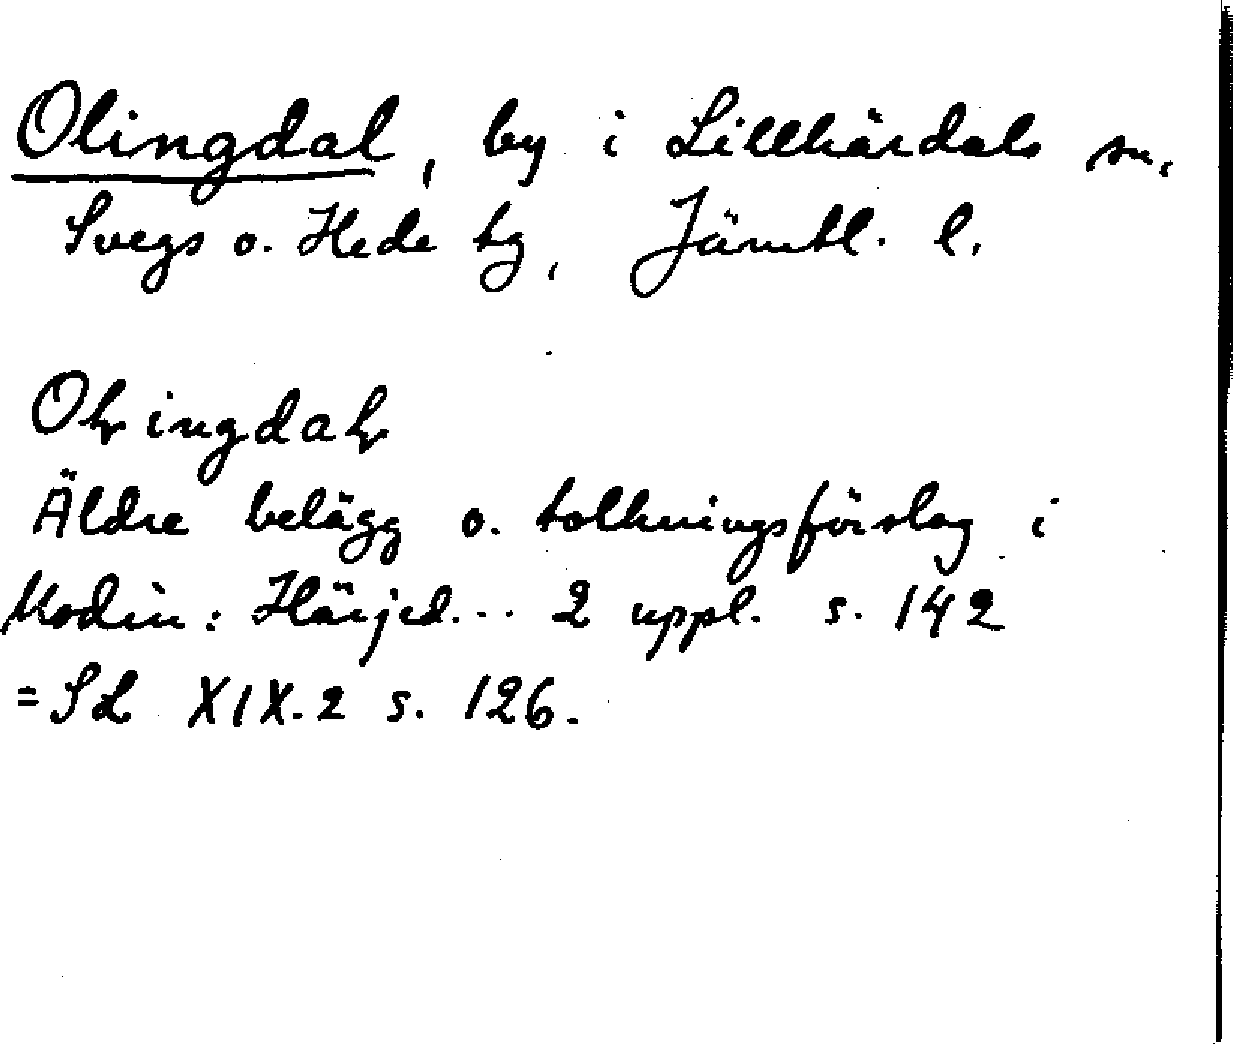 Olingdal, by i Lillhärdals sn,
Svegs o. Hede tg, Jämtl. l.
Oɭingdaɭ
Äldre belägg o. tolkningsförslag i
Modin: Härjed... 2 uppl. s. 142
= SL XIX.2 s. 126.